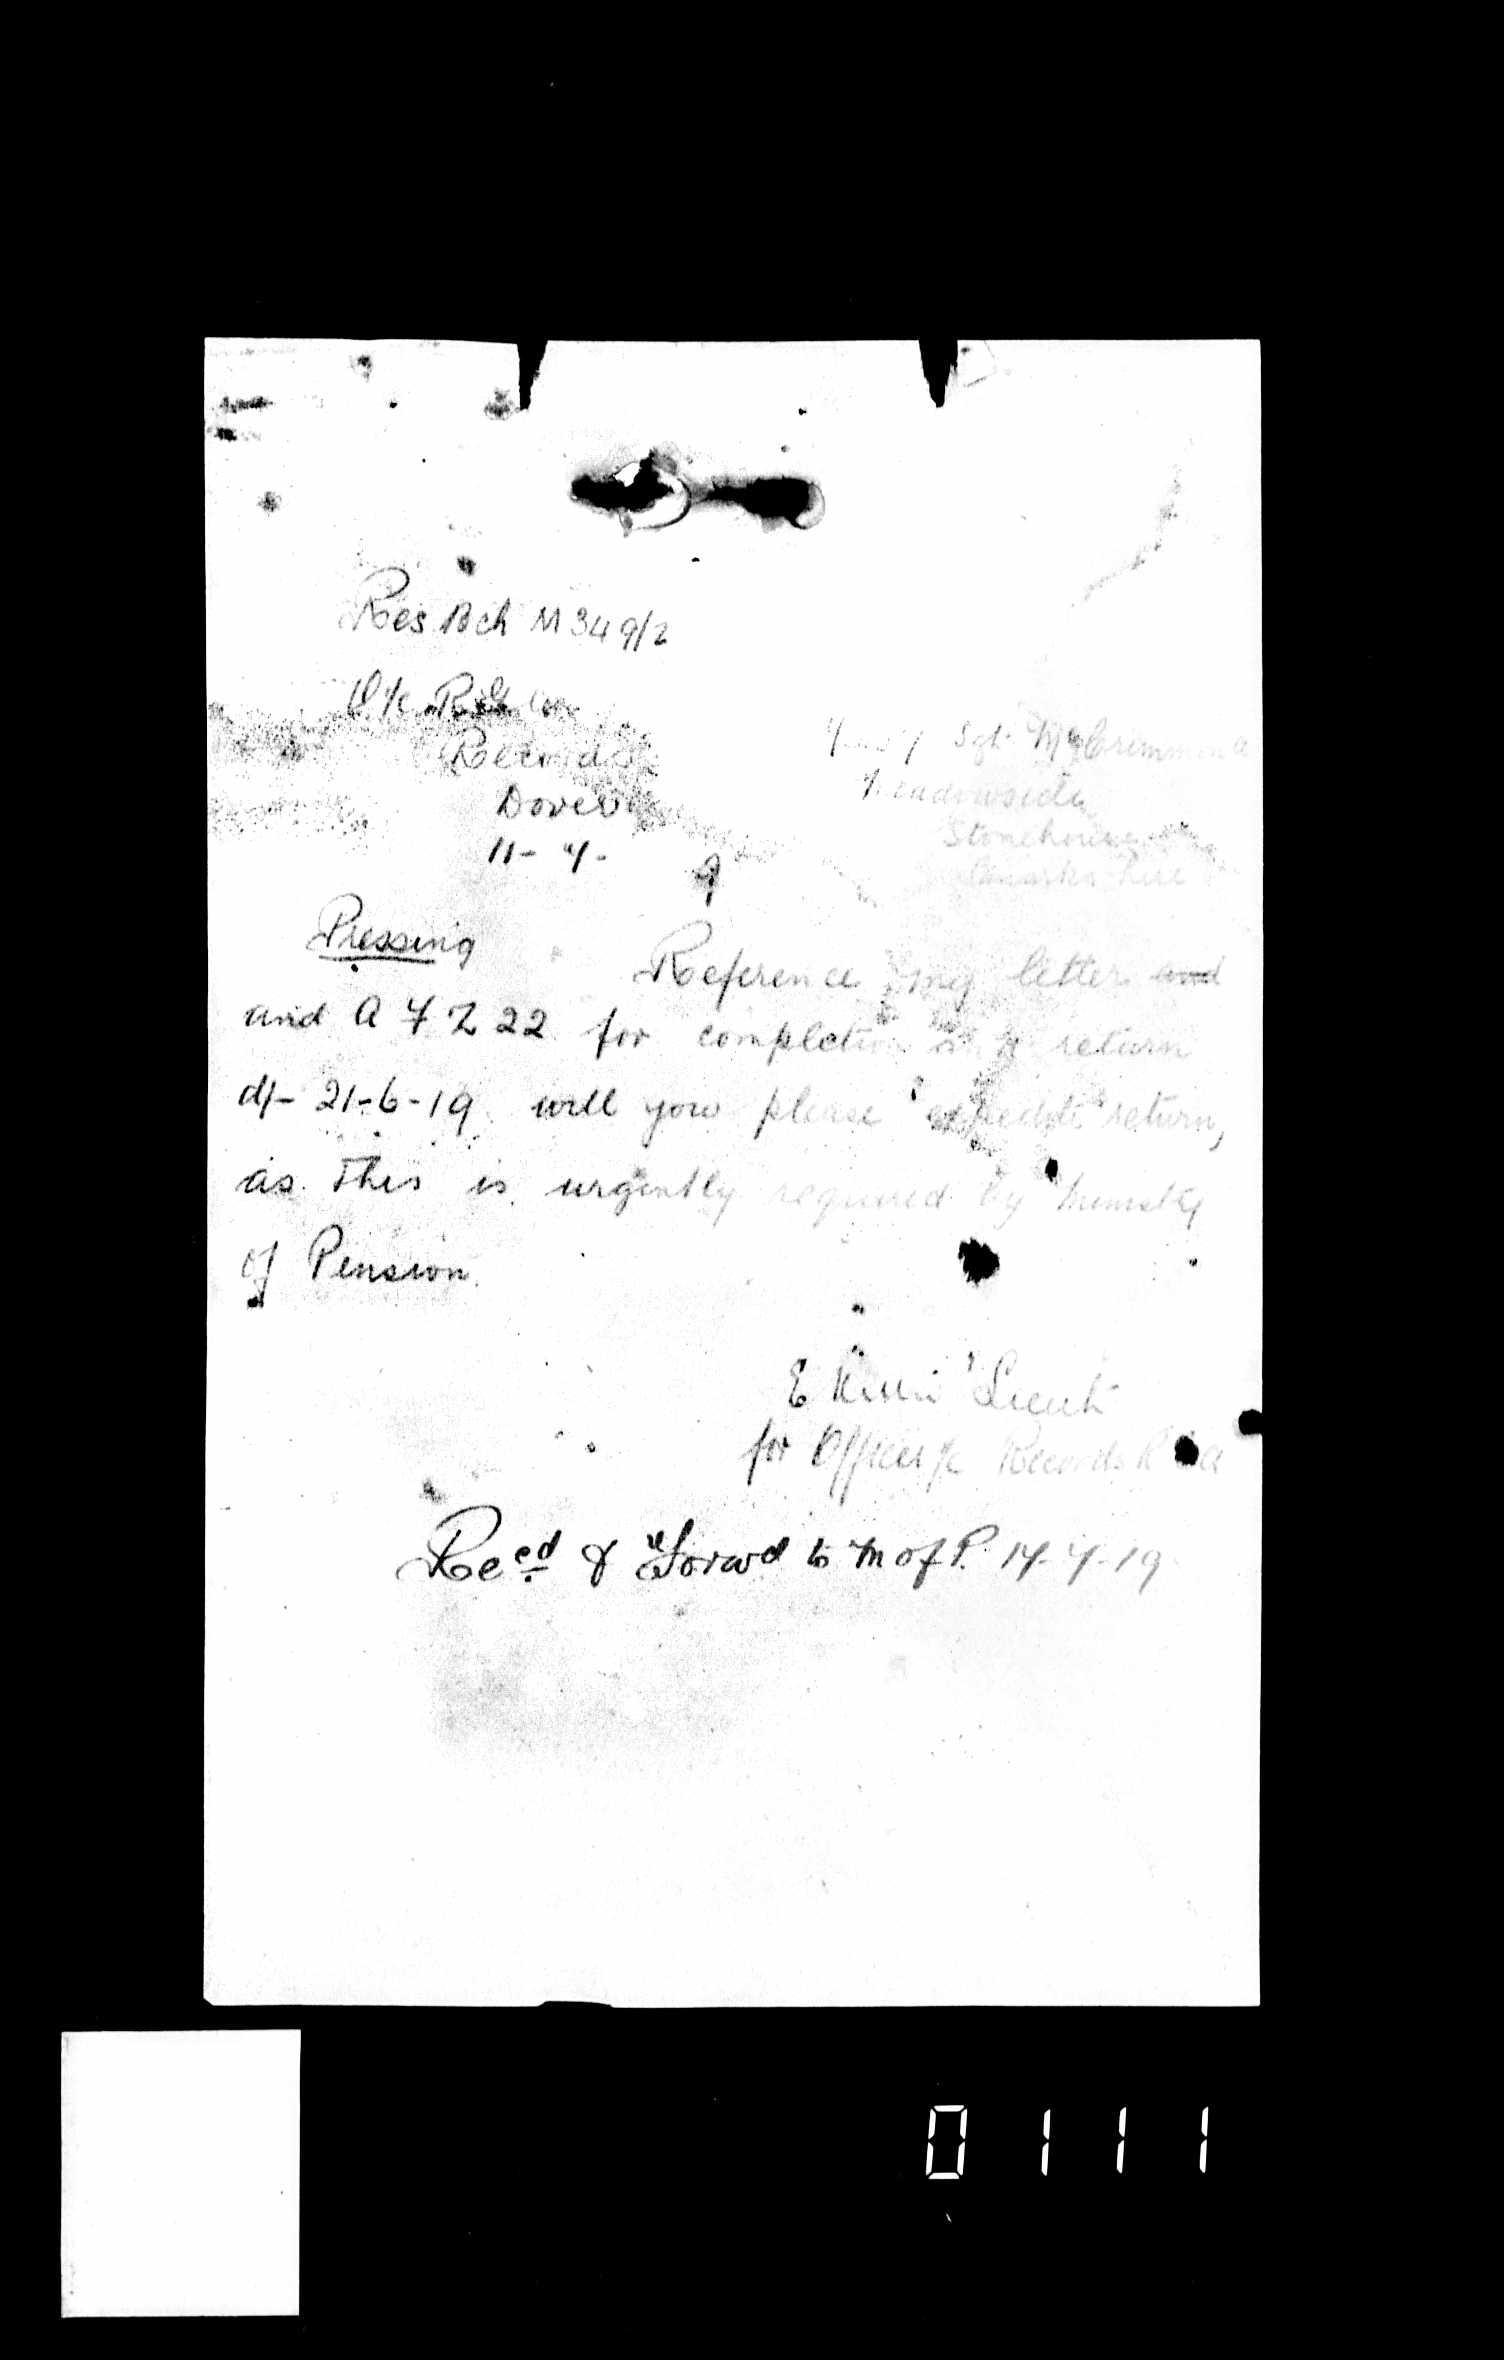 Res Bch M 349/2
O/c R
Records
Dover
11-7-
Sgt McCrimmon
Meadowside
Stonehouse
Lanarkshire
Pressing
Reference my letter and
and A F Z 22 for completion & return
d/- 21-6-19 will you please expedite return,
as this is urgently required by Ministry
of Pension.
E Lieut
for Officer i/c Records R A
Recd & Forwd to M of P. 14-7-19
0111